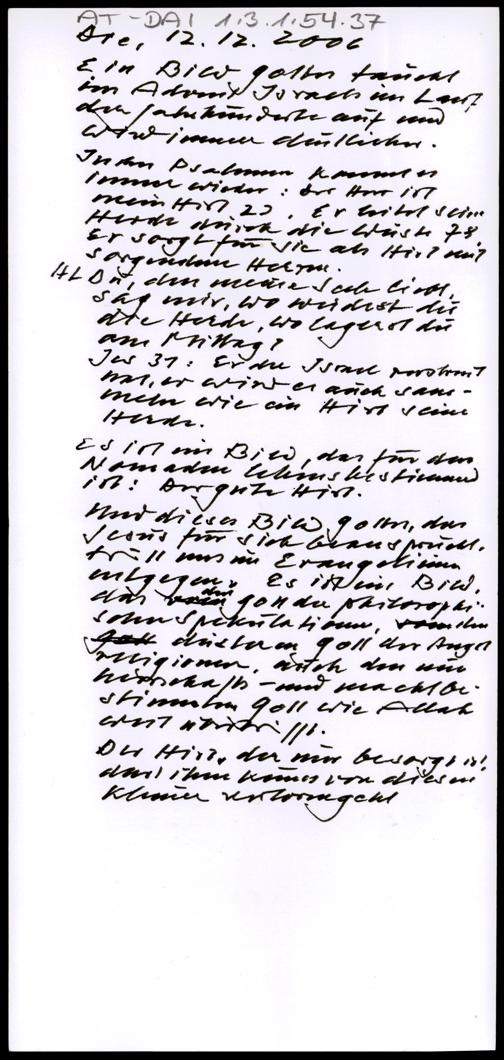 AT-DAI 1.3.1.54.37
Die, 12.12.2006
Ein Bild Gottes taucht
im Advent Israels im Lauf
der Jahrhunderte auf und
wird immer deutlicher.
In den Psalmen kommt es
immer wieder: Der Herr ist
mein Hirt 23. Er leitet seine
Herde durch die Wüste 78
Er sorgt für sie als Hirt mit
sorgendem Herzen.
HL Du, den meine Seele liebt,
sag mir, wo weidest du
die Herde, wo lagerst du
am Mittag?
Jer 31: Er der Israel zerstreut
hat, er wird es auch sam-
meln wie ein Hirt seine
Herde.
Es ist ein Bild, das für den
Nomaden lebensbestimmend
ist: Der gute Hirt.
Und dieses Bild Gottes, das
Jesus für sich beansprucht,
tritt uns im Evangelium
entgegen. Es ist ein Bild,
das den Gott der philosophi-
schen Spekulationen,
den düsteren Gott der Angst
religionen, auch den nur
herrschafts- und machtbe-
stimmten Gott wie Allah
weit übertrifft.
Der Hirt, der nur besorgt ist,
dass ihm keines von diesen
Kleinen verlorengeht